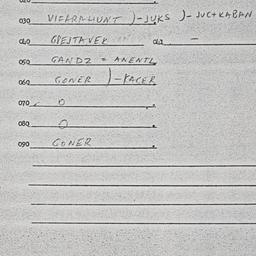 030 VIHARAHUNT )-JUKS )- JUC+KABAN
040 GPEJTAVEK 042 -
050 GANDZ = ANENTL
060 GONER )-KACER
070 0
080 0
090 GONER